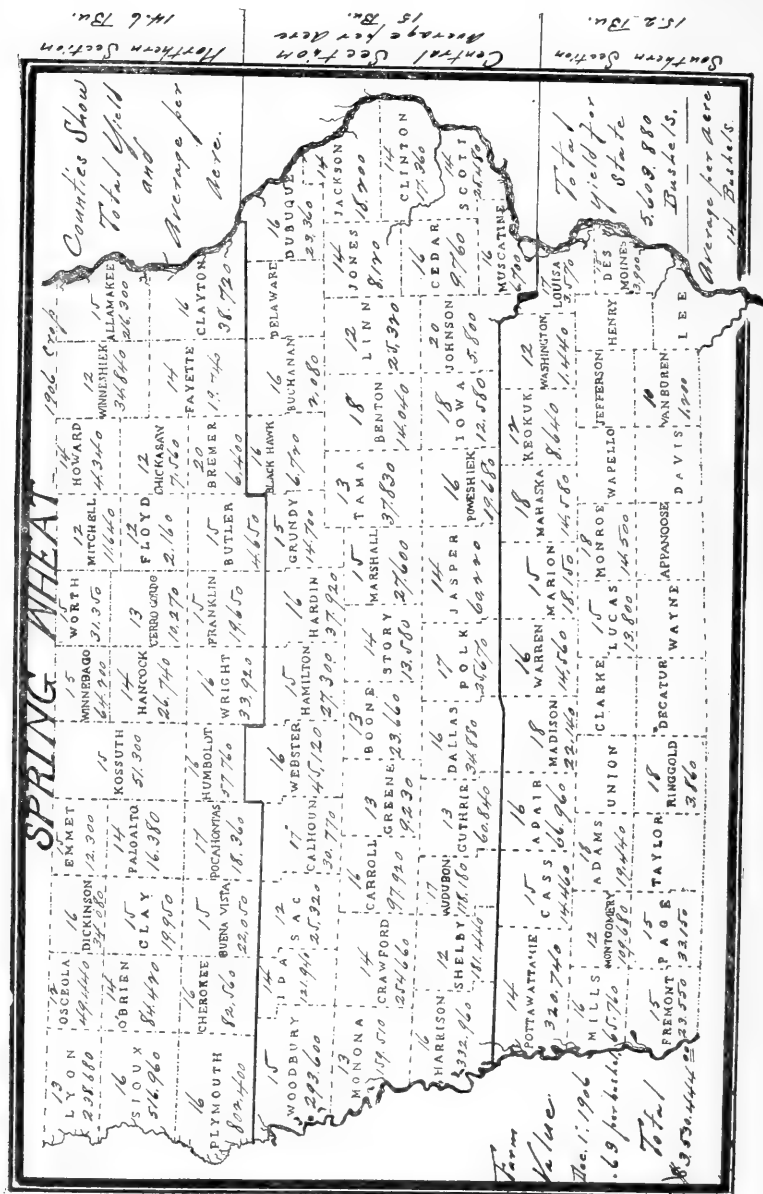 SPRING WHEAT
1906 Crop
Counties Show
Total Yield
and
Average per
Acre.
Northern Section
14.6 Bu.
Central Section
Average per acre
15 Bu.
Southern Section
15.2 Bu.
13
LYON
238.680
12
OSCEOLA
49.440
16
DICKINSON
34.080
15
EMMET
12.300
15
KOSSUTH
51.300
15
WINNEBAGO
64.200
15
WORTH
31.350
12
MITCHELL
11.640
14
HOWARD
4.340
12
WINNESHIEK
34.840
15
ALLAMAKEE
26.300
16
SIOUX
516.960
14
O'BRIEN
84.420
15
CLAY
19.950
14
PALO ALTO
16.380
14
HANCOCK
26.740
13
CERRO GORDO
10.270
12
FLOYD
2.160
12
CHICKASAW
7.560
14
FAYETTE
19.740
16
CLAYTON
38.720
16
PLYMOUTH
802.400
16
CHEROKEE
82.560
15
BUENA VISTA
22.050
17
POCAHONTAS
18.360
16
HUMBOLDT
57.760
16
WRIGHT
33.920
15
FRANKLIN
19.650
15
BUTLER
4.650
20
BREMER
6.400
15
WOODBURY
293.600
14
IDA
121.940
12
SAC
25.320
17
CALHOUN
30.770
16
WEBSTER
45.120
15
HAMILTON
27.300
16
HARDIN
37.920
15
GRUNDY
14.700
16
BLACK HAWK
6.720
16
BUCHANAN
2.080
DELAWARE
16
DUBUQUE
29.360
13
MONONA
159.510
14
CRAWFORD
254.660
16
CARROLL
97.920
13
GREENE
9.230
13
BOONE
23.660
14
STORY
13.580
15
MARSHALL
27.600
13
TAMA
37.830
18
BENTON
14.040
12
LINN
25.320
14
JONES
8.120
14
JACKSON
18.200
16
HARRISON
332.960
12
SHELBY
181.440
17
AUDUBON
118.180
13
GUTHRIE
60.840
16
DALLAS
34.880
17
POLK
25.670
14
JASPER
60.220
16
POWESHIEK
19.680
18
IOWA
12.580
20
JOHNSON
5.800
16
CEDAR
9.760
14
CLINTON
17.360
14
SCOTT
16
MUSCATINE
6.700
14
POTTAWATTAMIE
320.740
15
CASS
14.460
16
ADAIR
66.960
18
MADISON
22.140
16
WARREN
14.560
15
MARION
18.150
18
MAHASKA
14.580
12
KEOKUK
8.640
12
WASHINGTON
1.440
17
LOUISA
3.570
16
MILLS
65.760
12
MONTGOMERY
109.680
18
ADAMS
19.440
UNION
CLARKE
15
LUCAS
13.800
18
MONROE
14.500
WAPELLO
JEFFERSON
HENRY
DES
MOINES
3.900
15
FREMONT
23.550
15
PAGE
33.150
TAYLOR
18
RINGGOLD
3.860
DECATUR
WAYNE
APPANOOSE
DAVIS
10
VAN BUREN
1.200
LEE
Farm
Value
Dec. 1: 1906
.69 per bushel
Total
$3.530.444.00
Total
yield for
State
5.609.880
Bushels.
Average per Acre
14 Bushels.